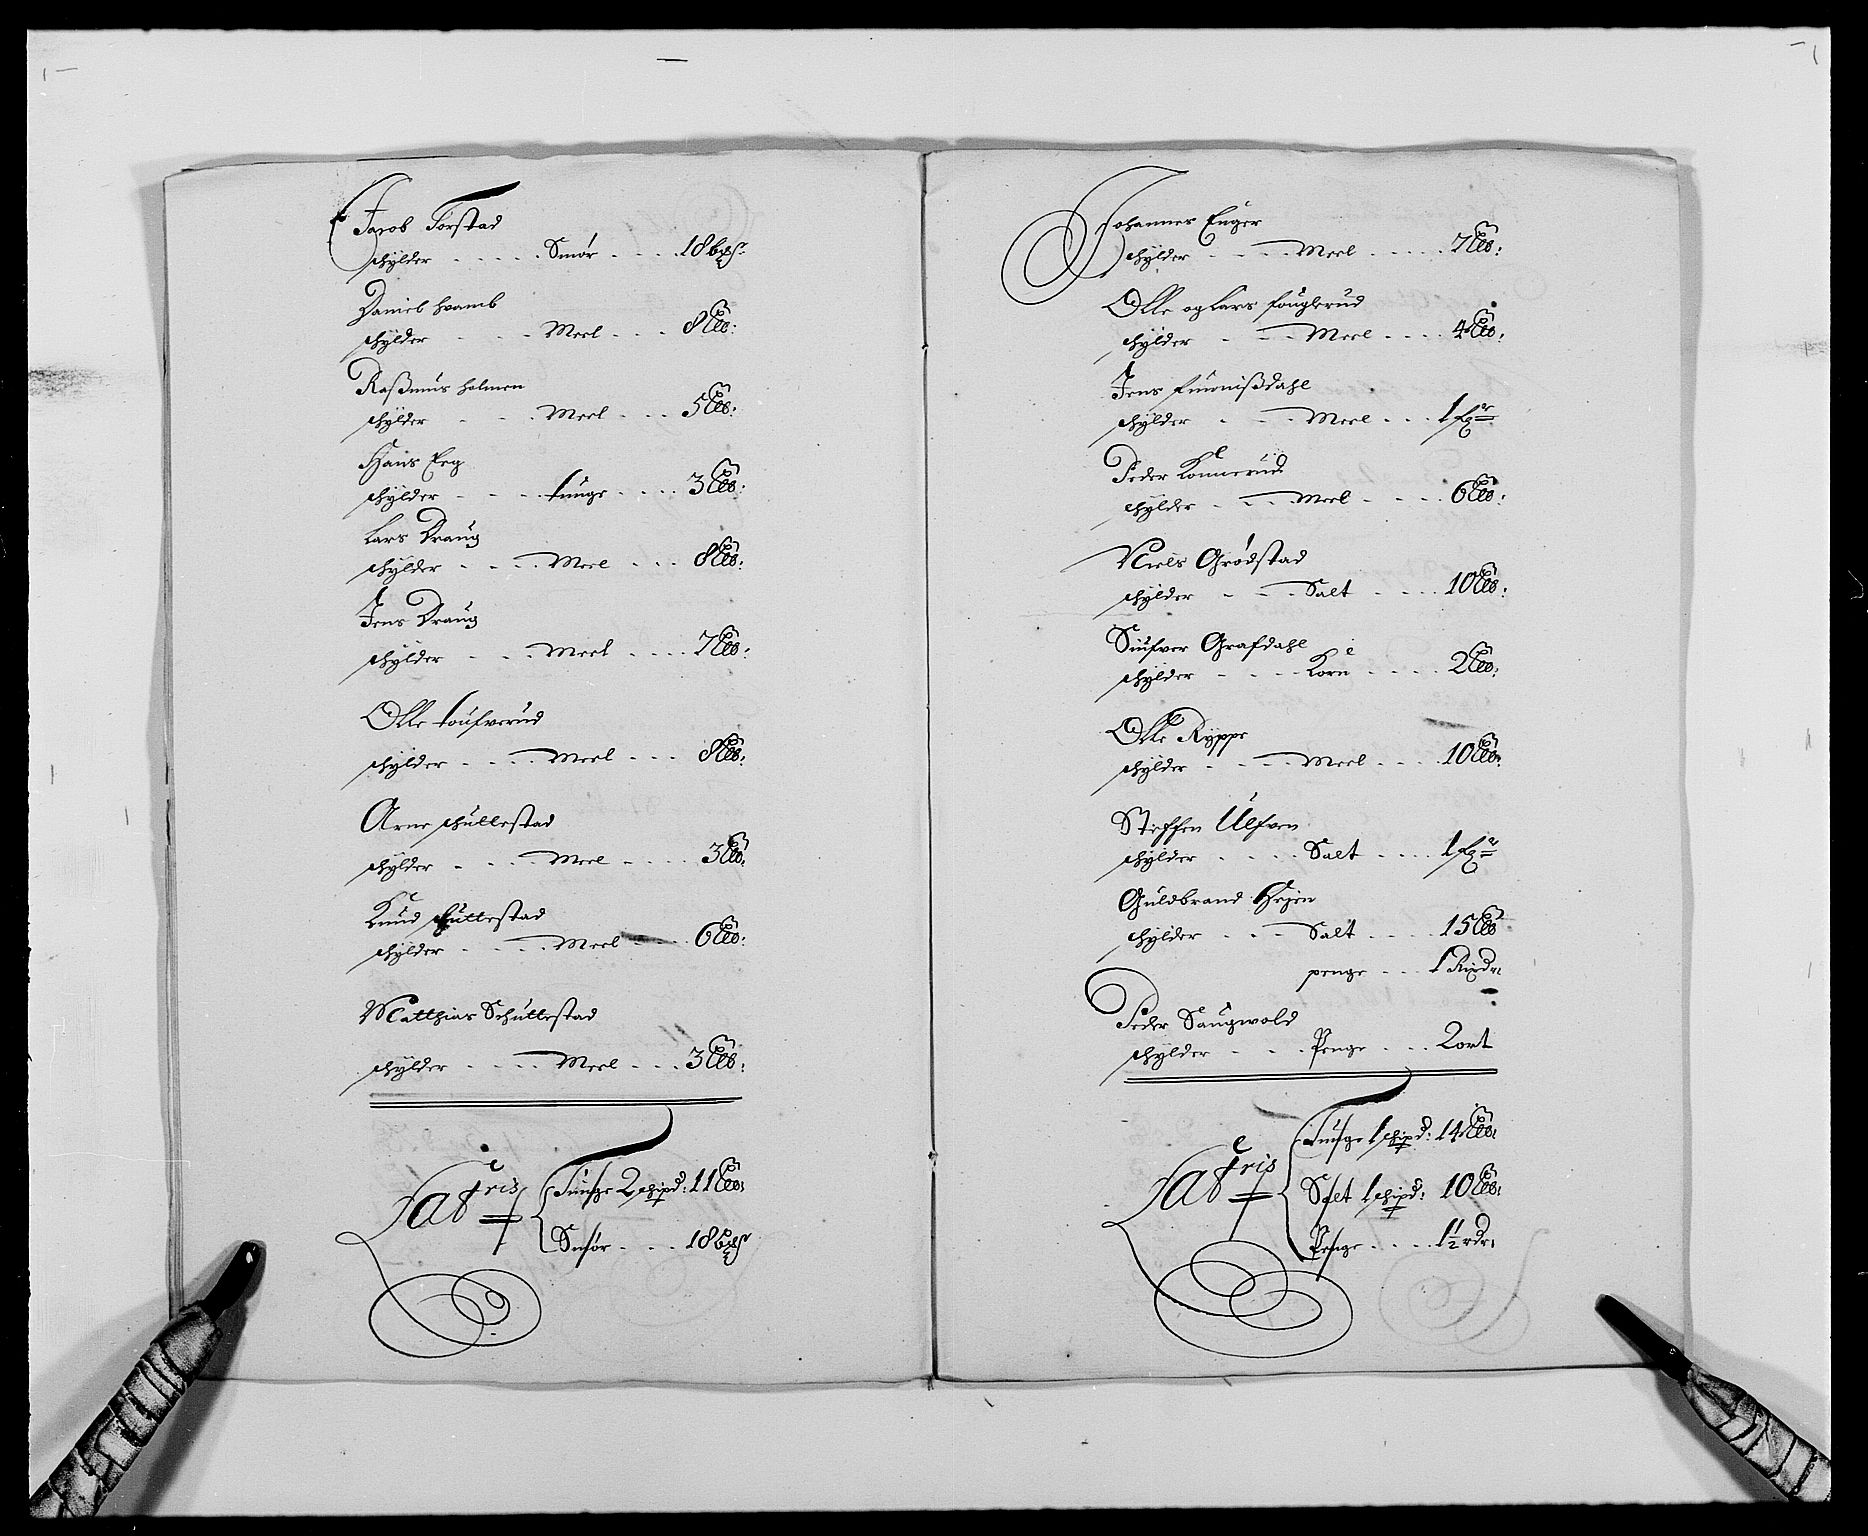 Jacob Torstad
schylder . . . . . Smør . . . . 18 bpd
Daniel Hvamb
schylder - - - Meel . . . . 8 Lb:
Raßmus Holmen
schylder - - - Meel . . . 5 Lb:
Hans Eeg
schylder - - - Tunge . . . . 3 Lb:
Lars Draug
schylder - - - - Meel . . . 8 Lb:
Jens Draug
schylder - - - Meel . . . . 7 Lb:
Olle
schylder - - - - Meel . . . 8 Lb:
Arne schullestad
schylder - - - - Meel - . . . 3 Lb:
Knud schullestad
schylder - - - - Meel 6 Lb:
Matthias Schullestad
schylder - - - - Meel . . . 3 Lb:
Lateris
Tunge 2 schipd: 11 Lb:
Smør . . . 18 bpd
Johannes Enger
schylder - - - - Meel . . . . . 7 Lb:
Olle og Lars fouglerud
schylder - - - Meel . . . . 4 Lb:
Jens
schylder - - - Meel . . . 1 fr
Peder Konnerud
schylder - - - Meel - . . . 6 Lb:
Niels Grødstad
schylder - - - Salt . . . . 10 Lb:
Siufver Grafdahl
schylder - - - - Korn . . . . . 2 Lb:
Olle Ryppe
schylder - - - - Meel . . . . 10 Lb:
Steffen Ulfven
schylder . . . . . Salt . . . . 1 fr
Guldbrand Hejen
schylder - - - Salt . . . . . 15 Lb
penge - - . . 1 Rixdr
Peder Saugwold
schylder - - - - Penge . . . . 2 ort
Lateris
Tunge 1 schipd: 14 Lb:
Salt 1 schipd: 10 Lb:
Penge . . . . 1½ rdr: